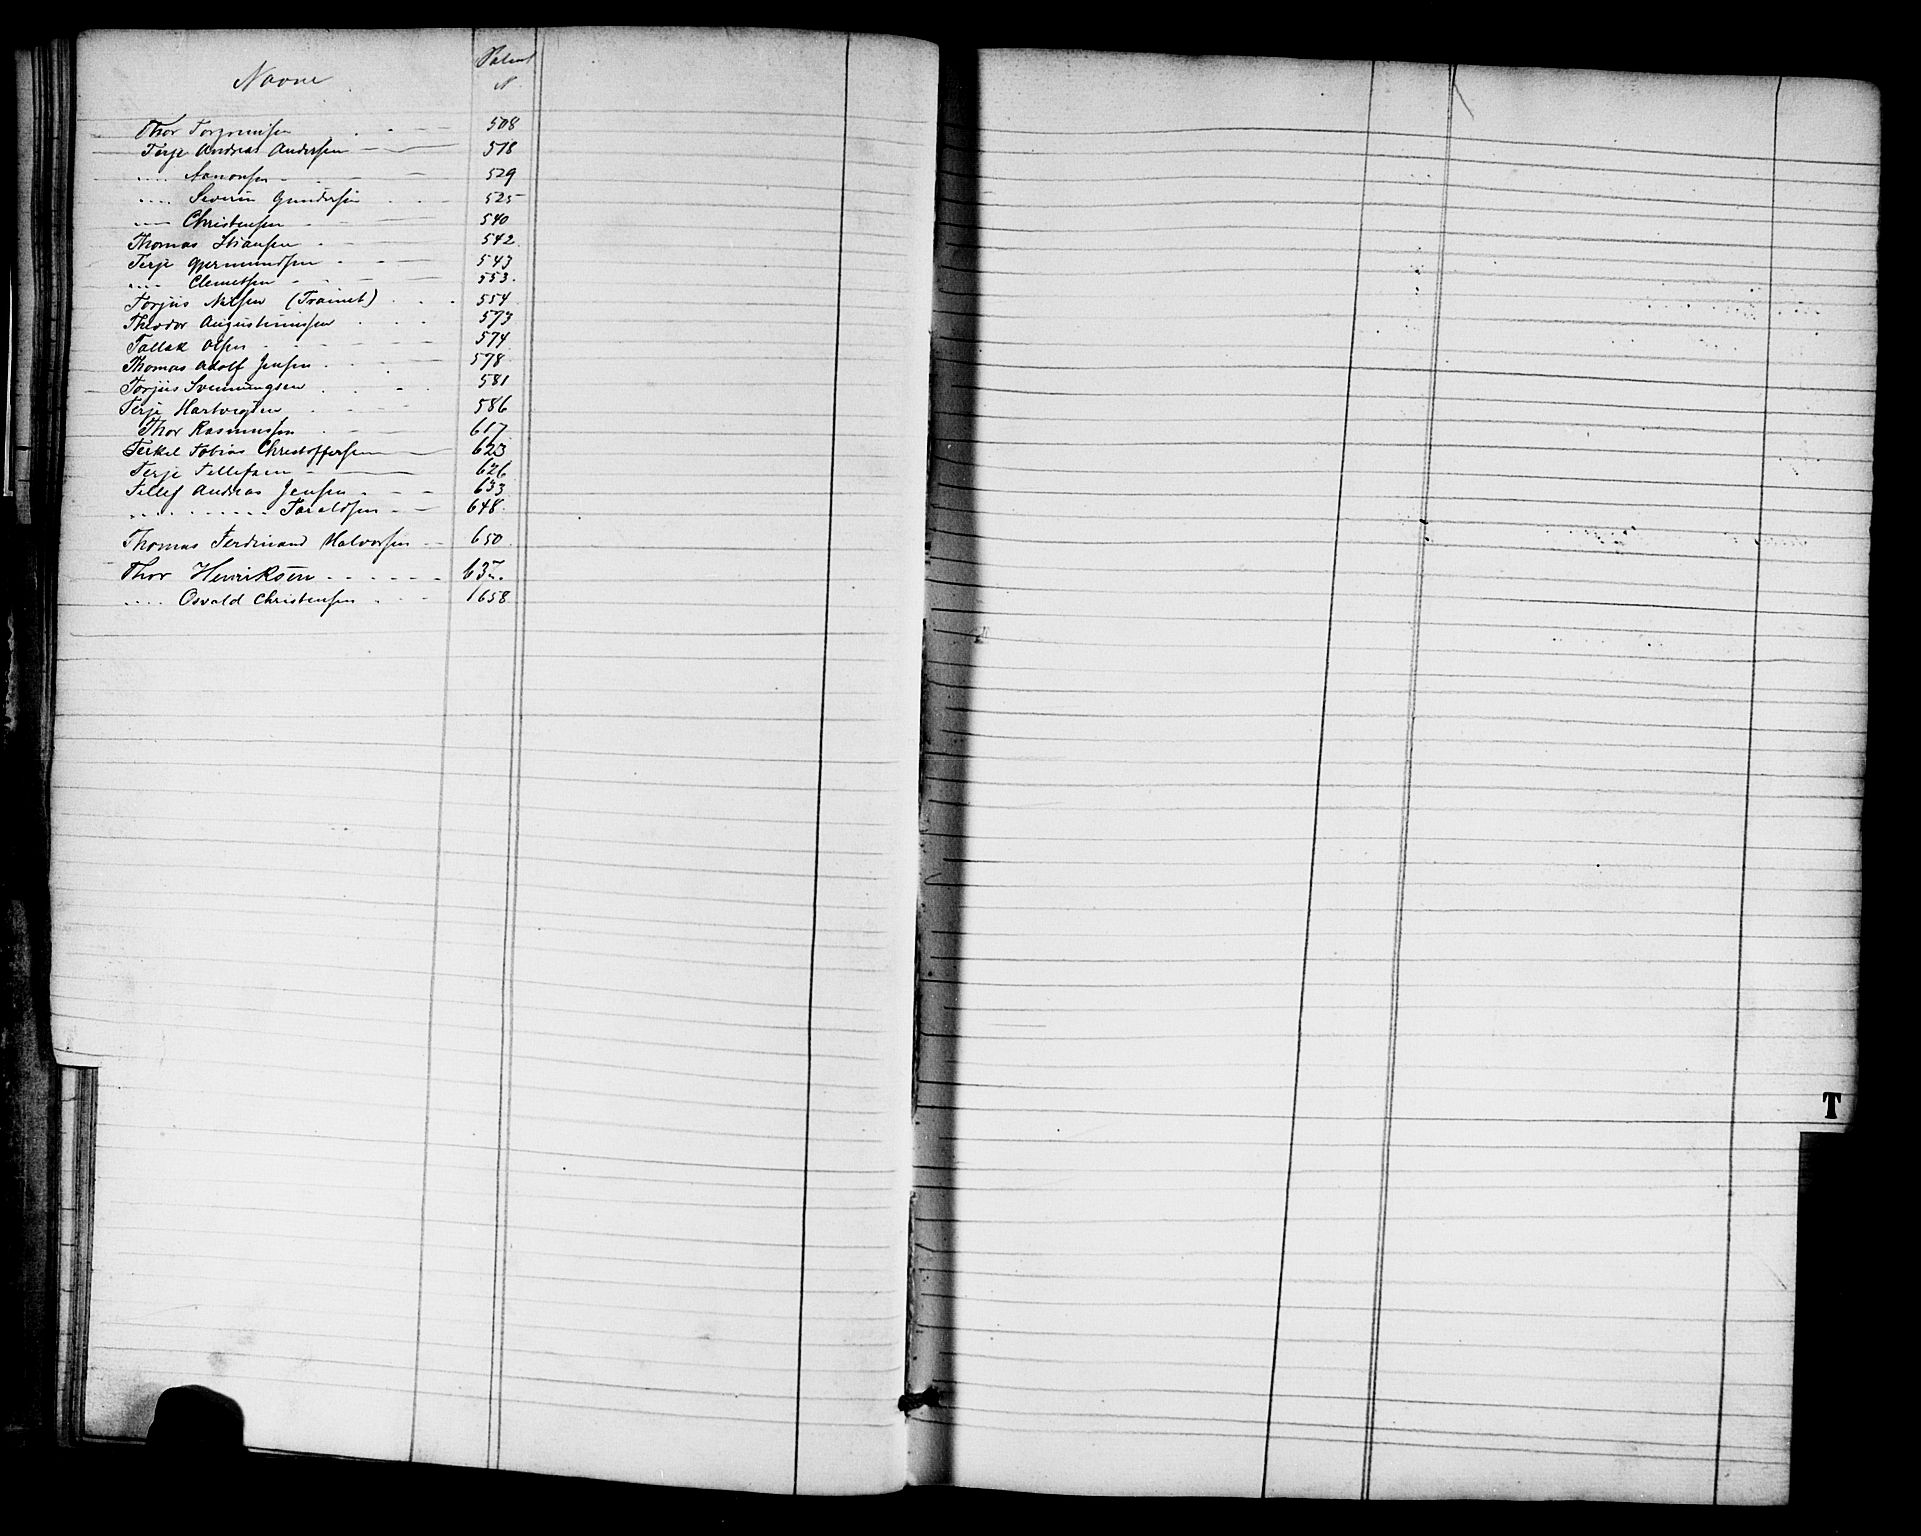 Navne Patent
N.
Thor 508
Terje Andreas Andersen 518
.... Aanonsen 529
.... Severin Gundersen 525
.... Christensen 540
Thomas Hansen 542
Terje Gjermundsen 543
.... Clemetsen 553.
Torjus Nilsen (Trainet) 554
Theodor Augustinussen 573
Tallak Olsen 574
Thomas Adolf Jensen 578
Torjus Svenningsen 581
Terje Hartvigsen 586
Thor Rasmussen 617
Terkel Tobias Christoffersen 623
Terje Tellefsen 626
Tellef Andreas Jensen 633
.... Taraldsen 648.
Thomas Ferdinand Halvorsen 650.
Thor Henriksen
.... Osvald Christensen 1658
T